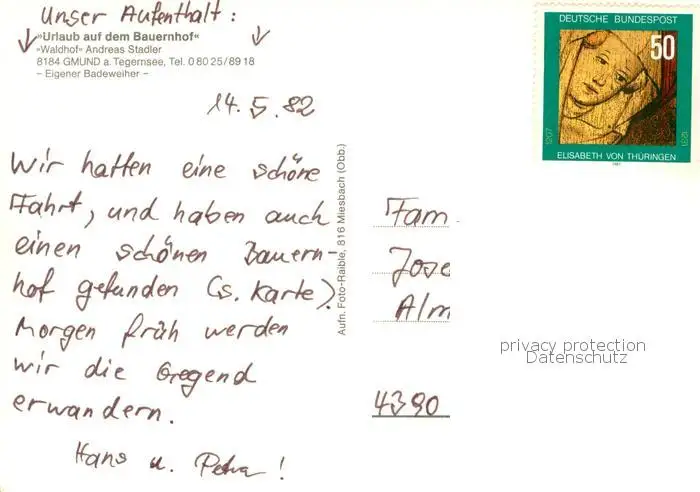 Unser Aufenthalt:
»Urlaub auf dem Bauernhof«
»Waldhof« Andreas Stadler
8184 GMUND a. Tegernsee, Tel. 0 80 25/89 18
– Eigener Badeweiher –
14.5.82
Wir hatten eine schöne
Fahrt, und haben auch
einen schönen Bauern-
hof gefunden (s. Karte).
Morgen früh werden
wir die Gegend
erwandern.
Hans u. Petra!
Aufn. Foto-Raible, 816 Miesbach (Obb.)
DEUTSCHE BUNDESPOST
50
1207
1231
ELISABETH VON THÜRINGEN
1981
Fam
Jose
Alm
4390
privacy protection
Datenschutz